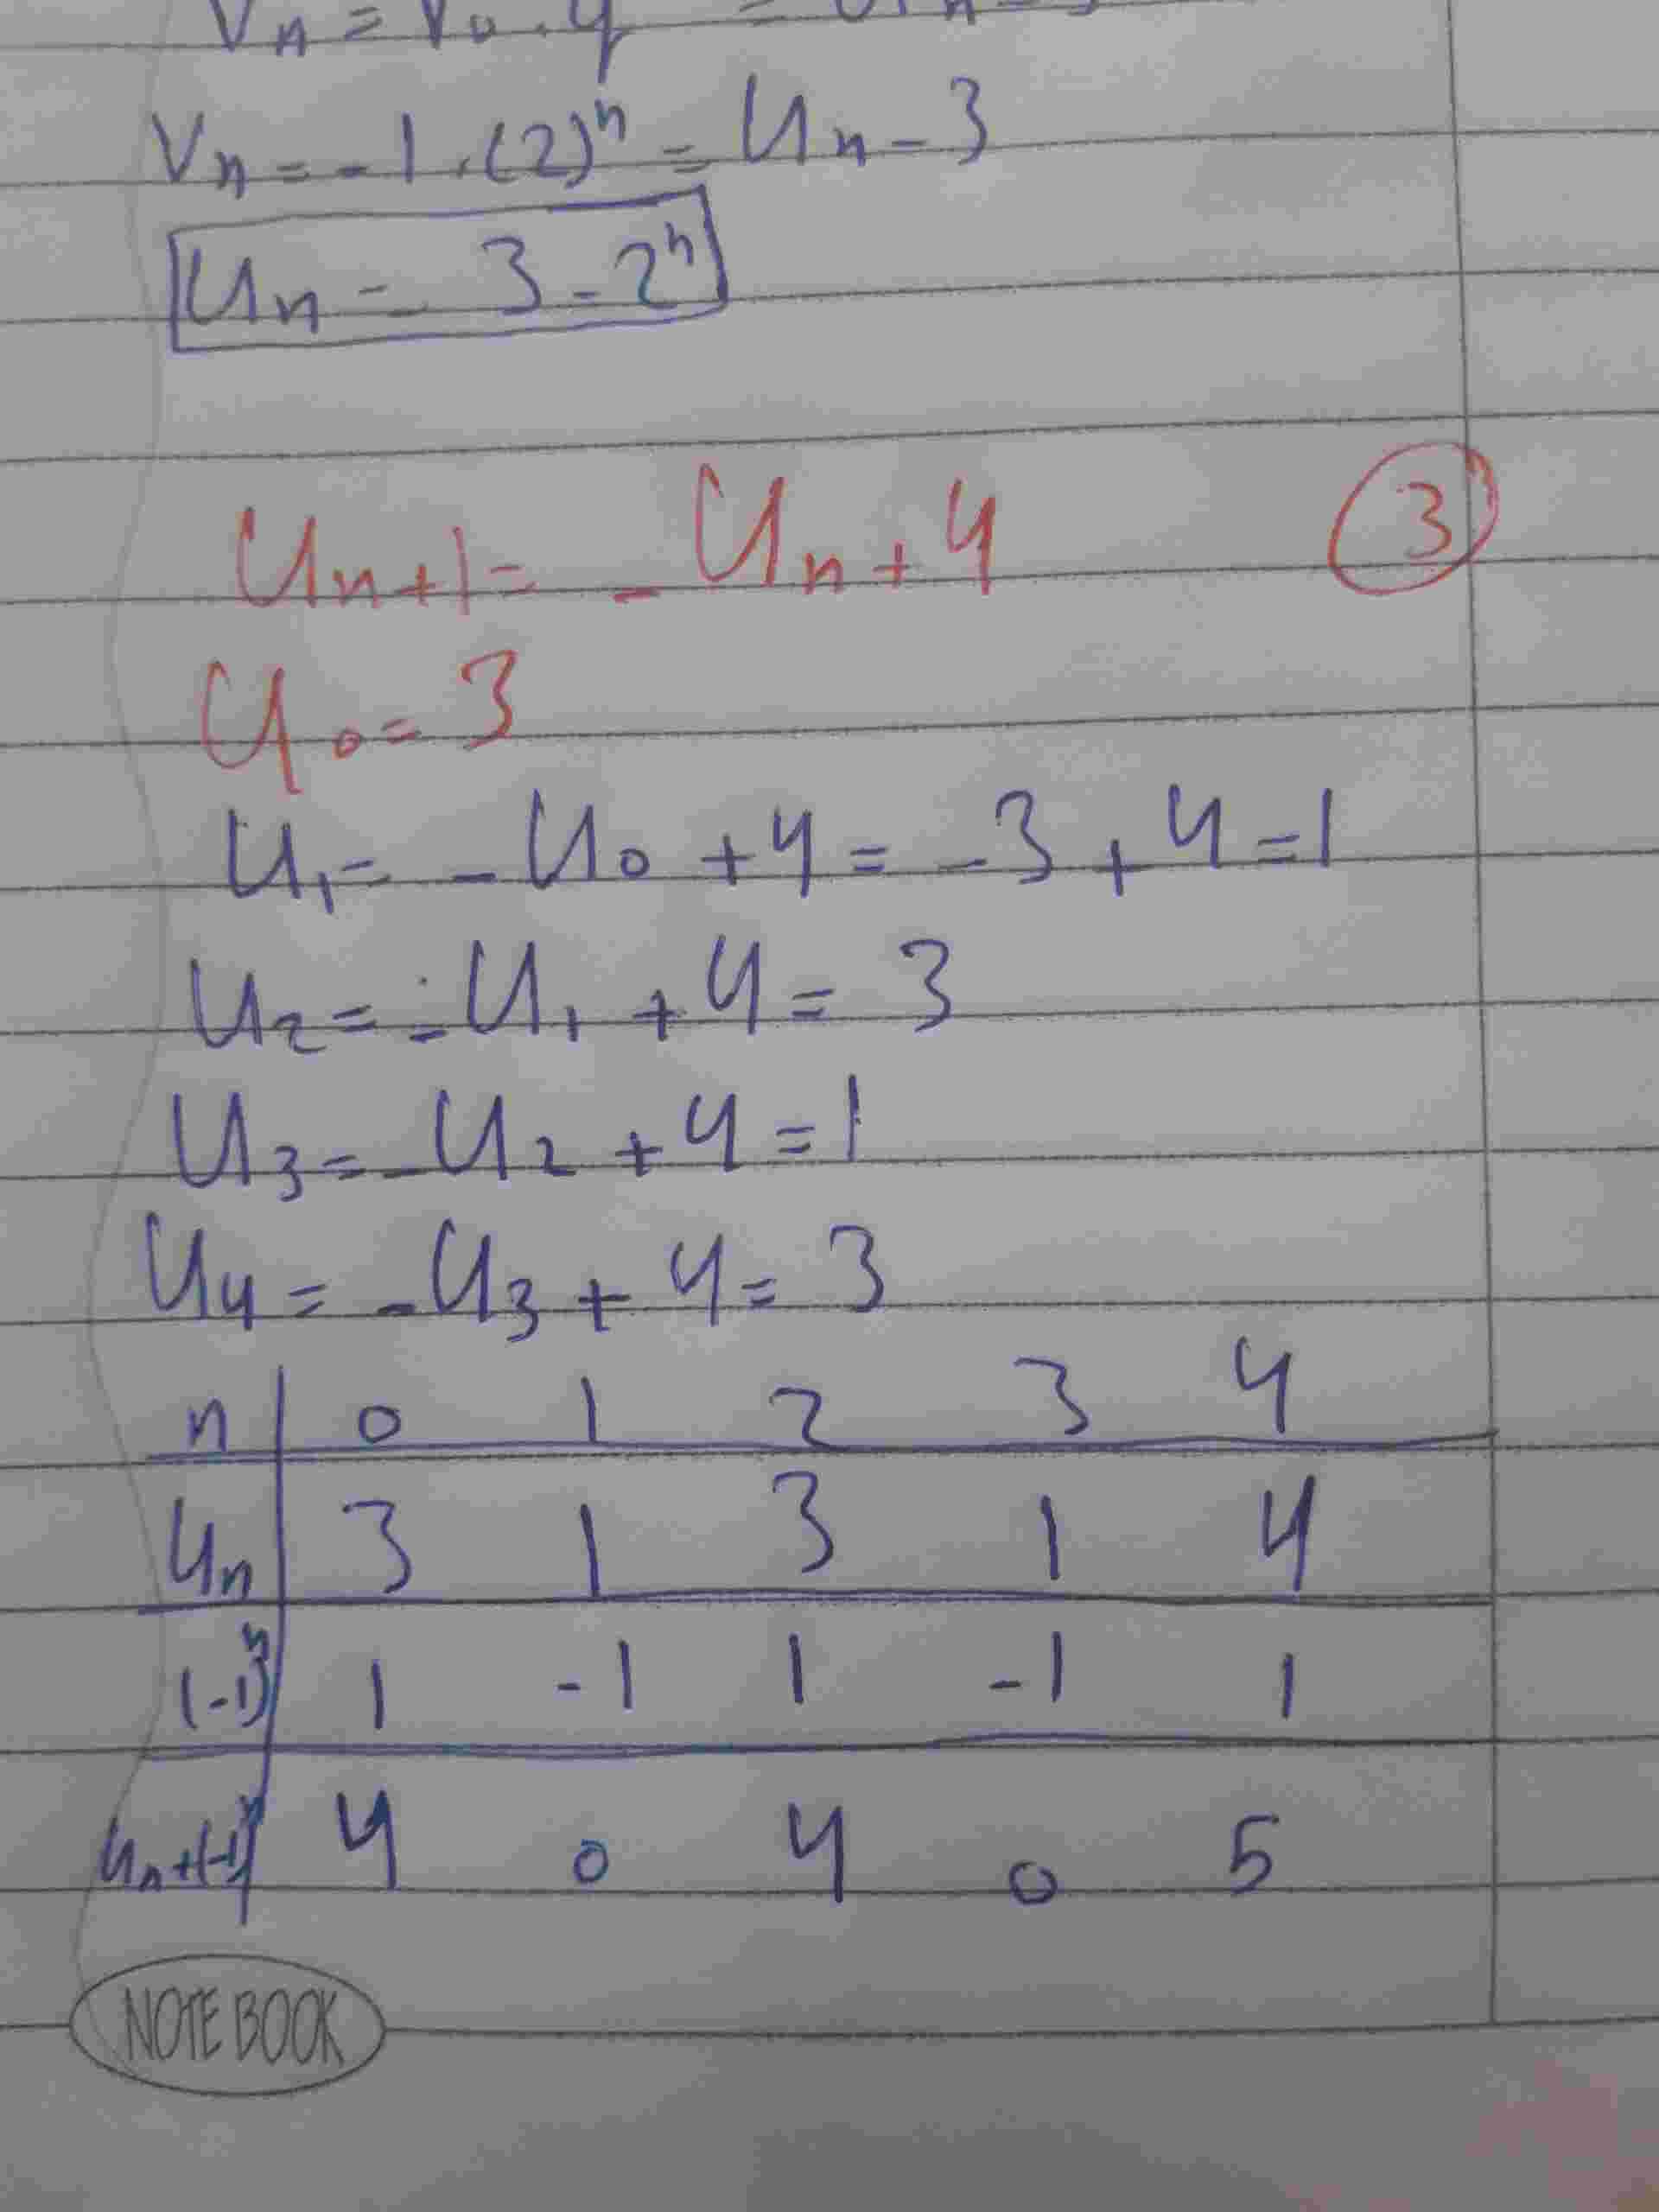 Vn = V0 . q
Vn = -1 . (2)^n = Un - 3
Un = 3 - 2^n
Un+1 = - Un + 4 3
U0 = 3
U1 = - U0 + 4 = - 3 + 4 = 1
U2 = - U1 + 4 = 3
U3 = - U2 + 4 = 1
U4 = - U3 + 4 = 3
n 0 1 2 3 4
Un 3 1 3 1 4
(-1)^n 1 -1 1 -1 1
Un+(-1)^n 4 0 4 0 5
NOTE BOOK